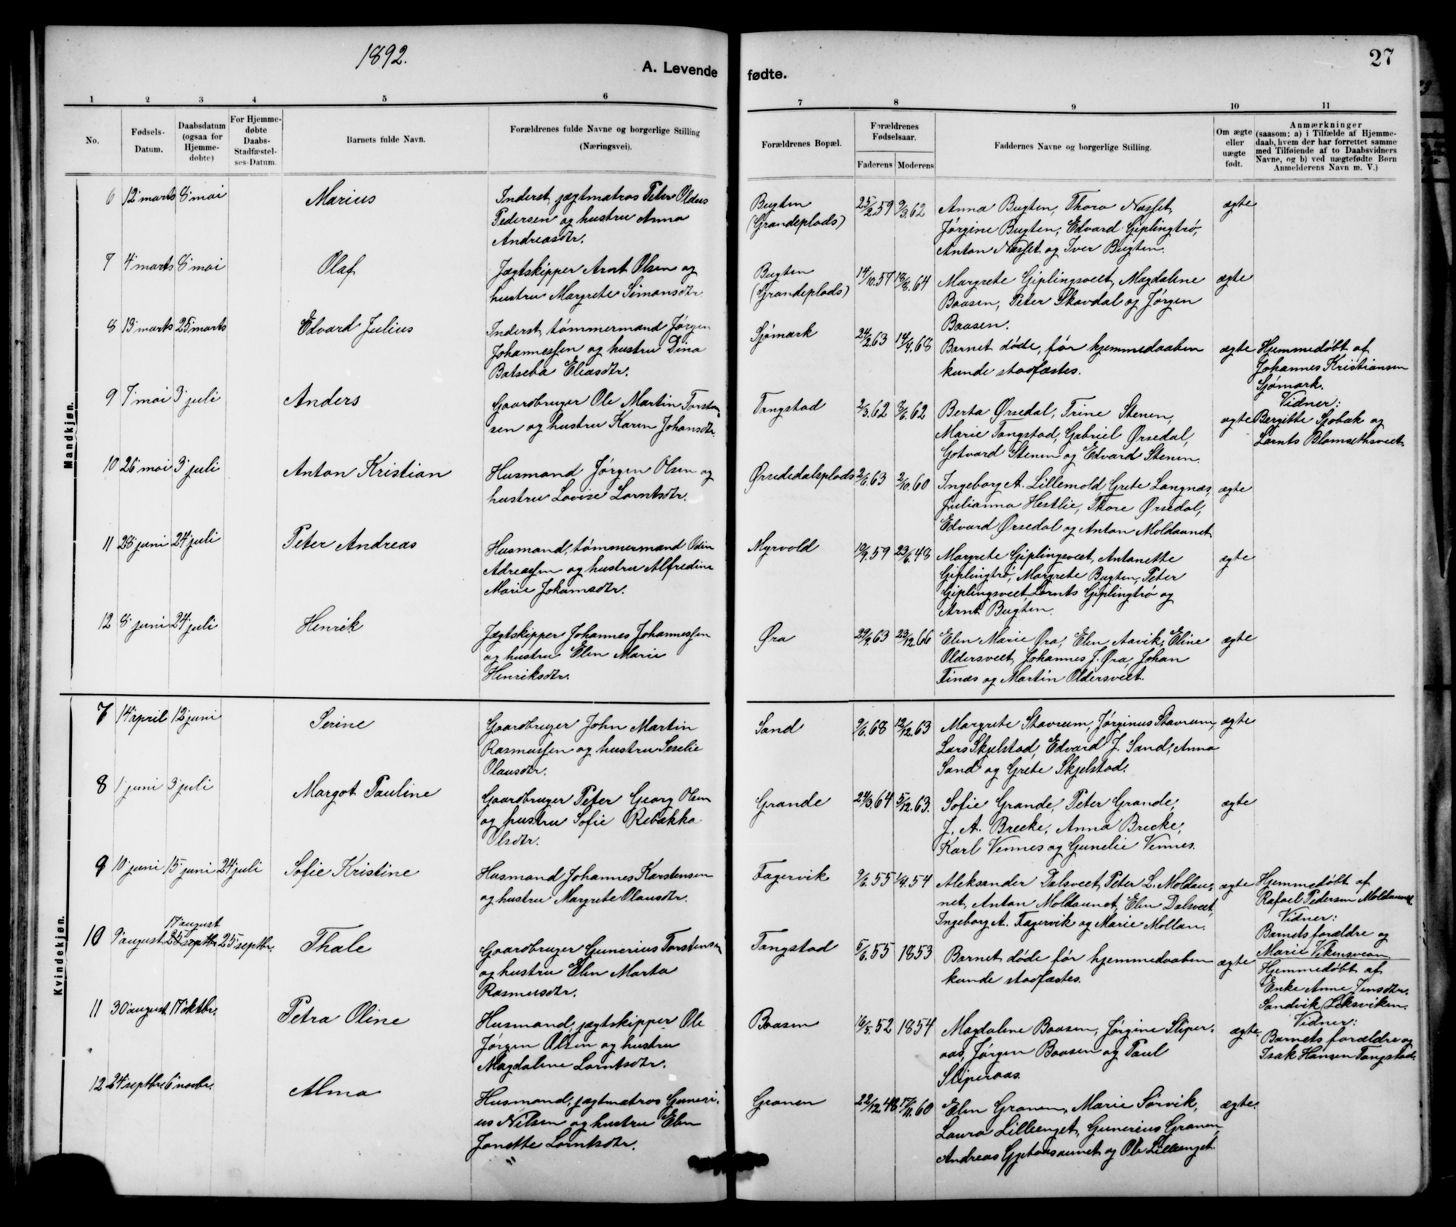 1892.
27
A. Levende fødte.
1 2 3 4 5 6 7 8 9 10 11
No.
Fødsels-
Datum.
Daabsdatum
(ogsaa for
Hjemme-
døbte)
For Hjemme-
døbte
Daabs-
Stadfæstel-
ses-Datum.
Barnets fulde Navn.
Forældrenes fulde Navne og borgerlige Stilling
(Næringsvei).
Forældrenes Bopæl.
Forældrenes
Fødselsaar.
Faderens Moderens
Faddernes Navne og borgerlige Stilling.
Om ægte
eller
uægte
født.
Anmærkninger
(saasom: a) i Tilfælde af Hjemme-
daab, hvem der har forrettet samme
med Tilføiende af to Daabsvidners
Navne, og b) ved uægtefødte Børn
Anmelderens Navn m. V.)
Mandkjøn.
6 12 marts 8 mai Marius
Inderst, jægtmatros Peter Olaus
Pedersen og hustru Anna
Andreasdtr.
Bugten
(Grandeplads)
59 62
Anna Bugten, Thora Næsset,
Jørgine Bugten, Edvard Giplingtrø,
Anton Næsset og Iver Bugten.
ægte
7 4 marts 8 mai Olaf
Jægtskipper Arnt Olsen og
hustru Margrete Simonsdtr.
Bugten
(Grandeplads)
14/10.57 64
Margrete Giplingsveet, Magdalene
Baasen, Peter Skavdal og Jørgen
Baasen.
ægte
8 13 marts 25 marts Edvard Julius
Inderst, tømmermand Jørgen
Johannessen og hustru Dina
Batseba Eliasdtr.
Sjømark
63 68
Barnet døde, før hjemmedaaben
kunde stadfæstes.
ægte
Hjemmedøbt af
Johannes Kristiansen
Sjømark.
Vidner:
Bergitte Sjobak og
Lornts Blomsethsveet
9 7 mai 3 juli Anders
Gaardbruger Ole Martin Torsten-
sen og hustru Karen Johansdtr.
Tangstad
62 62
Berta Ørsedal, Trine Stenen,
Marie Tangstad, Gabriel Ørsedal,
Gotvard Stenen og Edvard Stenen.
ægte
10 26 mai 3 juli Anton Kristian
Husmand Jørgen Olsen og
hustru Lovise Lorntsdtr.
Ørsededalsplads
63 60
Ingeborg A. Lillemold, Grete Langnæs,
Julianna Hestlie, Thore Ørsedal,
Edvard Ørsedal og Anton Moldaunet.
ægte
11 28 juni 24 juli Peter Andreas
Husmand, tømmermand Odin
Adreassen og hustru Alfredine
Marie Johansdtr.
Myrvold
59 23/6.48
Margrete Giplingsveet, Antonette
Giplingtrø, Margrete Bugten, Peter
Giplingsveet, Lornts Giplingtrø og
Arnt Bugten.
ægte
12 8 juni 24 juli Henrik
Jægtskipper Johannes Johannessen
og hustru Elen Marie
Henriksdtr.
Øra
63 23/12.66
Elen Marie Øra, Elen Aavik, Eline
Oldersveet, Johannes J. Øra, Johan
Finæs og Martin Oldersveet.
ægte
Kvindekjøn.
7 14 april 12 juni Serine
Gaardbruger John Martin
Rasmussen og hustru Seselie
Olausdtr.
Sand
68 12/12.63
Margrete Stavrum, Jørginus Stavrum,
Lars Skjelstad, Edvard J. Sand, Anna
Sand og Grete Skjelstad.
ægte
8 1 juni 3 juli Margot Pauline
Gaardbruger Peter Georg Olsen
og hustru Sofie Rebakka
Olsdtr.
Grande
64 5/12.63.
Sofie Grande, Peter Grande,
J. A. Brecke, Anna Brecke,
Karl Vennes og Gunelie Vennes.
ægte
9 10 juni 15 juni 24 juli Sofie Kristine
Husmand Johannes Karstensen
og hustru Margrete Olausdtr.
Fagervik
55 54
Aleksander Dalsveet, Peter L. Moldau-
net, Anton Moldaunet, Elen Dalsveet,
Ingeborg A. Fagervik og Marie Mollan.
ægte
Hjemmedøbt af
Rafael Pedersen Moldaunet
Vidner:
Barnets forældre og
Marie Vikensveen
10 9 august 17 august 25 septbr. 25 septbr. Thale
Gaardbruger Gunerius Torstensen
og hustru Elen Marta
Rasmusdtr.
Tangstad
55 1853
Barnet døde før hjemmedaaben
kunde stadfæstes.
ægte
Hjemmedøbt af
Enke Anne Jensdtr.
Sandvik, Leksviken.
Vidner:
Barnets forældre og
Isak Hansen Tangstad.
11 30 august 17 oktbr. Petra Oline
Husmand, jægtskipper Ole
Jørgen Olsen og hustru
Magdalene Lorntsdtr.
Baasen
52 1854
Magdalene Baasen, Jørgine Sliper-
aas, Jørgen Baasen og Paul
Sliperaas.
ægte
12 24 septbr. 6 novbr. Alma
Husmand, jægtmatros Guneri-
us Nilsen og hustru Elen
Jonette Lorntsdtr.
Granen
22/12.48 60
Elen Granen, Marie Sørvik,
Laura Lillienget, Gunerius Granen,
Andreas og Ole Lillienget.
ægte